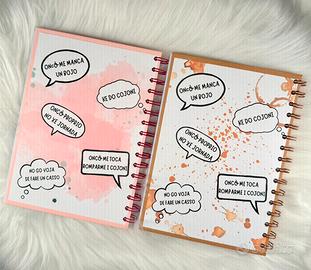 ONCÓ ME MANCA
UN BOJO
KE DO COJONI
ONCÓ PROPRIO
NO XE JORNADA
ONCÓ ME TOCA
ROMPARME I COJONI
NO GO VOJA
DE FARE UN CASSO
ONCÓ ME MANCA
UN BOJO
KE DO COJONI
ONCÓ PROPRIO
NO XE JORNADA
ONCÓ ME TOCA
ROMPARME I COJONI
NO GO VOJA
DE FARE UN CASSO